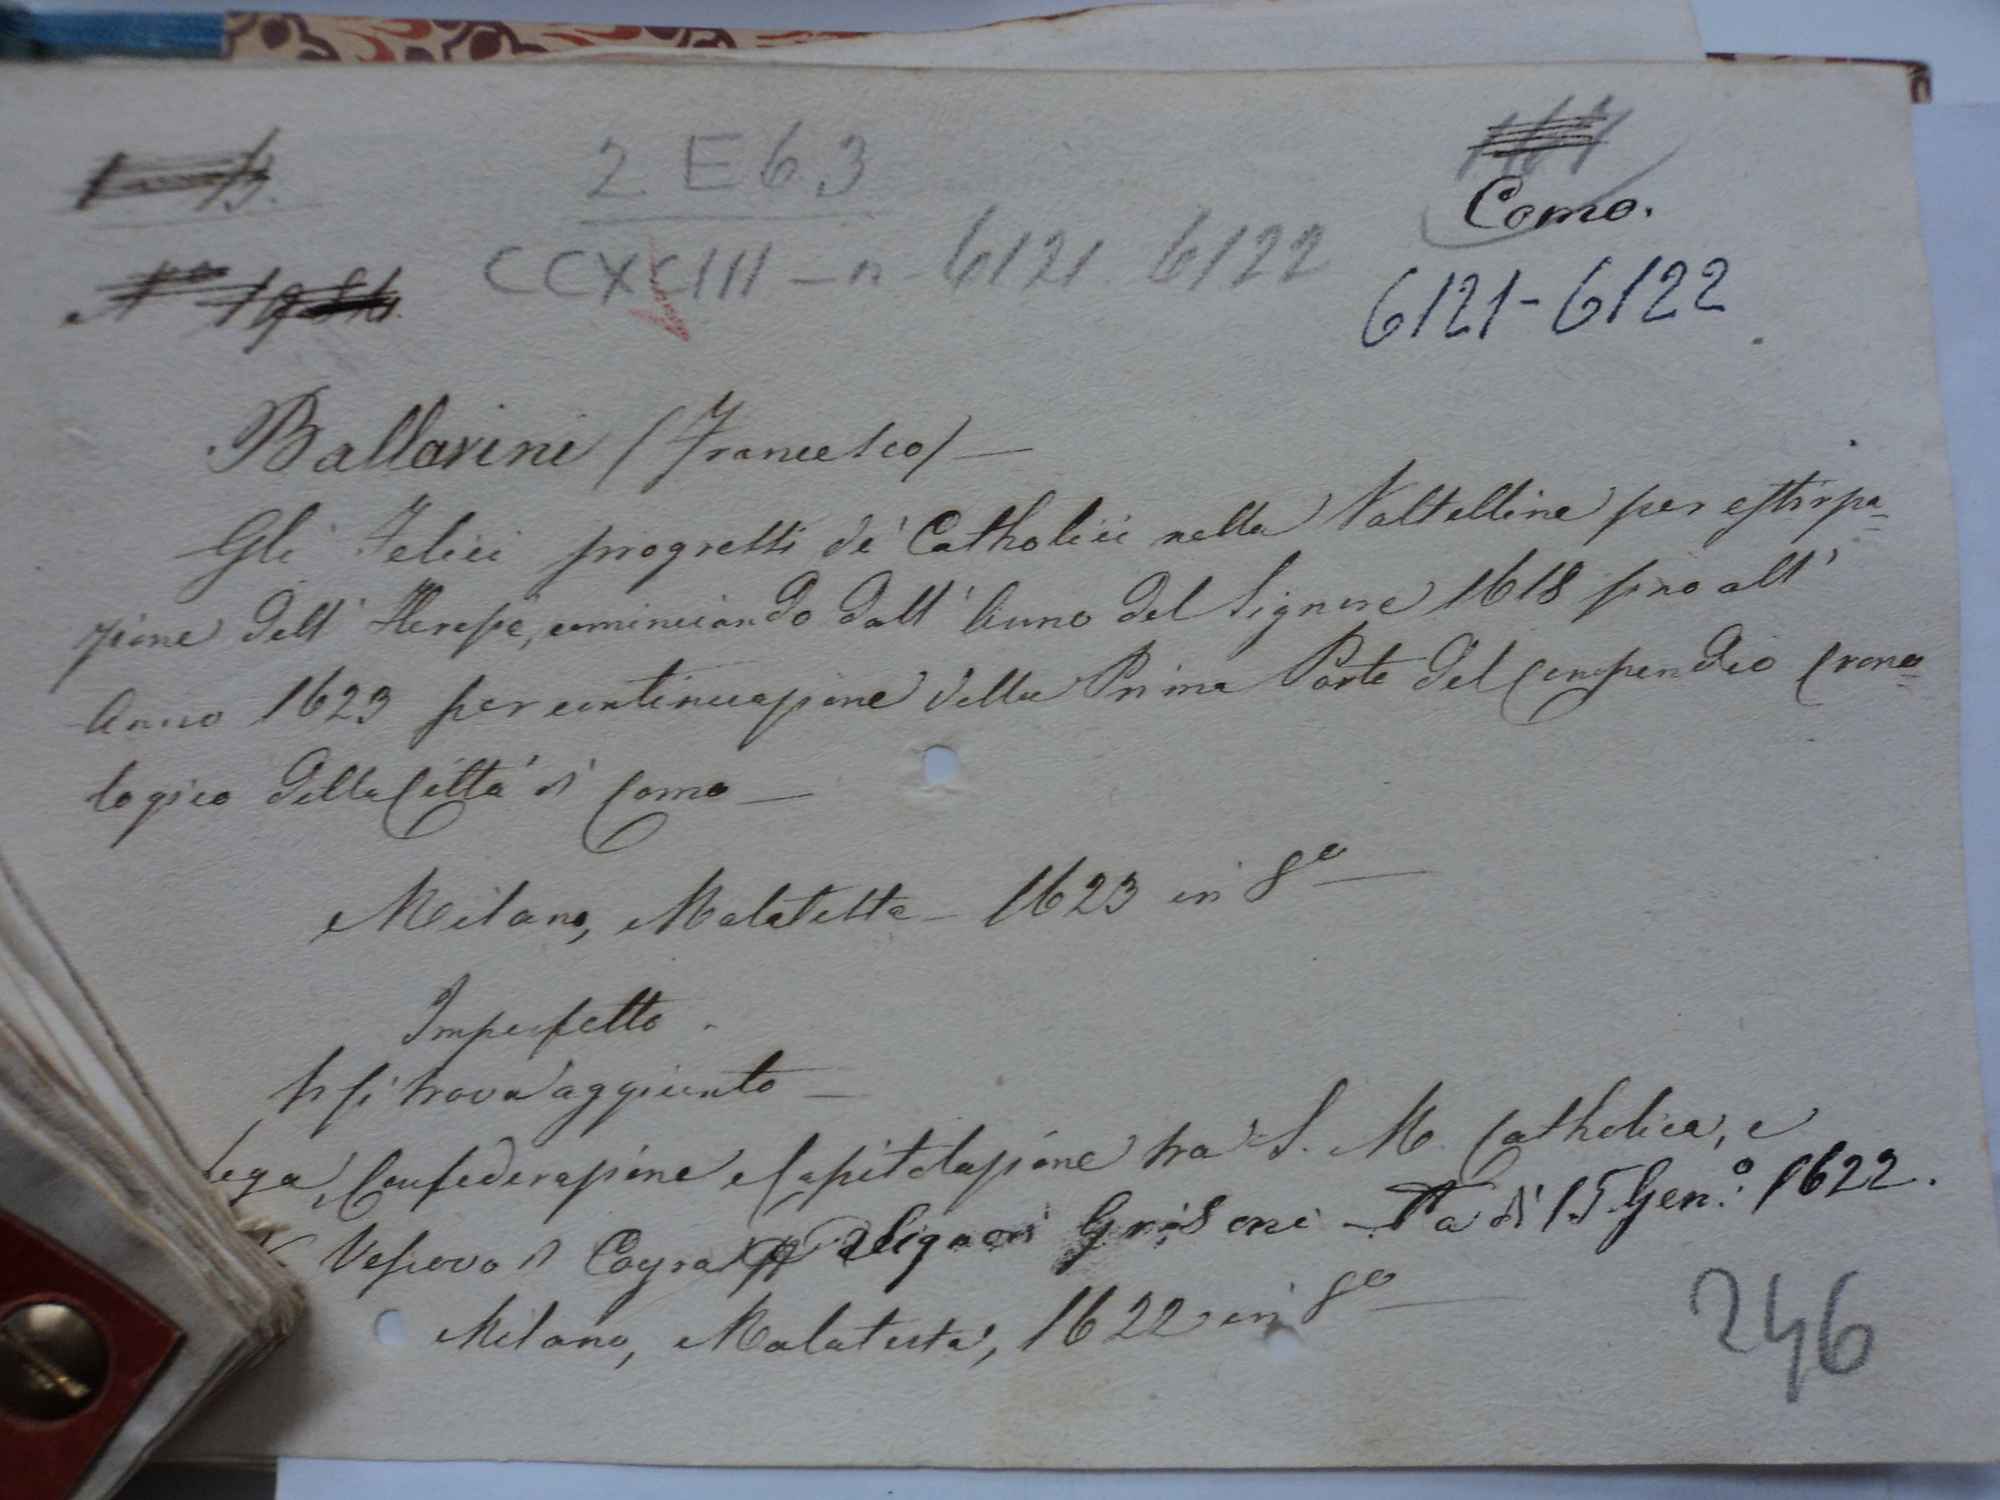 2 E 6.3
CCXCIII - n 6121. 6122
Como.
6121-6122
Ballarini (Francesco) —
Gli Felici progressi de' Catholici nella Valtellina per estirpa-
zione dell' Heresie, cominciando dall' Anno del Signore 1618 fino all'
Anno 1623 per continuazione della Prima Parte del Compendio Crono-
logico della Città di Como —
Milano, Malatesta - 1623 in 8º —
Imperfetto.
Vi si trova aggiunto —
Lega, Confederazione e Capitolazione tra S. M. Catholica, e
Vescovo di Coyra e Signori Grisoni - di 15 Gen.º 1622.
Milano, Malatesta, 1622 in 8º —
246